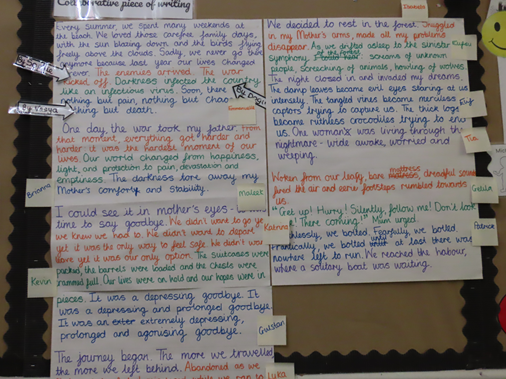 Collaborative piece of writing
Every summer, we spent many weekends
at the beach. We loved those carefree family days,
with the sun blazing down and the birds flying
freely above the clouds. Sadly, we never go there
anymore because last year our lives changed
forever. The enemies arrived. The war
kicked off. Darkness infected the country
like an infectious virus. Soon, there
nothing but pain, nothing but chaos
nothing but death.
By
By
By
One day, the war took my father. From
that moment, everything got harder and
harder it was the hardest moment of our
lives. Our world changed from happiness,
light, and protection to pain, devastation and
emptiness. The darkness tore away my
Mother's comfort and stability.
Brianna
I could see it in mother's eyes -
time to say goodbye. We didn't want to go yet
we knew we had to. We didn't want to depart
yet it was the only way to feel safe. We didn't want
leave yet it was our only option. The suitcases were
packed, the barrels were loaded and the chests were
rammed full. Our lives were on hold and our hopes were in
Kevin
pieces. It was a depressing goodbye. It
was a depressing and prolonged goodbye.
It was an exter extremely depressing,
prolonged and agonising goodbye.
The journey began. The more we travelled
the more we left behind. Abandoned as we
Luka
Daniela
We decided to rest in the forest. Snuggled
in my Mother's arms, made all my problems
disappear. As we drifted asleep to the sinister
symphony of the forest
screams of unknown
people, screeching of animals, howling of wolves.
The night closed in and invaded my dreams.
The damp leaves became evil eyes staring at us
intensely. The tangled vines became merciless
captors trying to capture us. The thick logs
became ruthless crocodiles trying to end
us. One woman's was living through this
nightmare - wide awake, worried and
weeping.
Tia
Woken from our leafy, bare mattress, dreadful sounds
fired the air and eerie footsteps rumbled towards
us.
"Get up! Hurry! Silently, follow me! Don't look
There coming!" Mum urged.
Breathlessly, we bolted. Fearfully, we bolted.
Frantically, we bolted until at last there was
nowhere left to run. We reached the harbour,
where a solitary boat was waiting.
Patrick